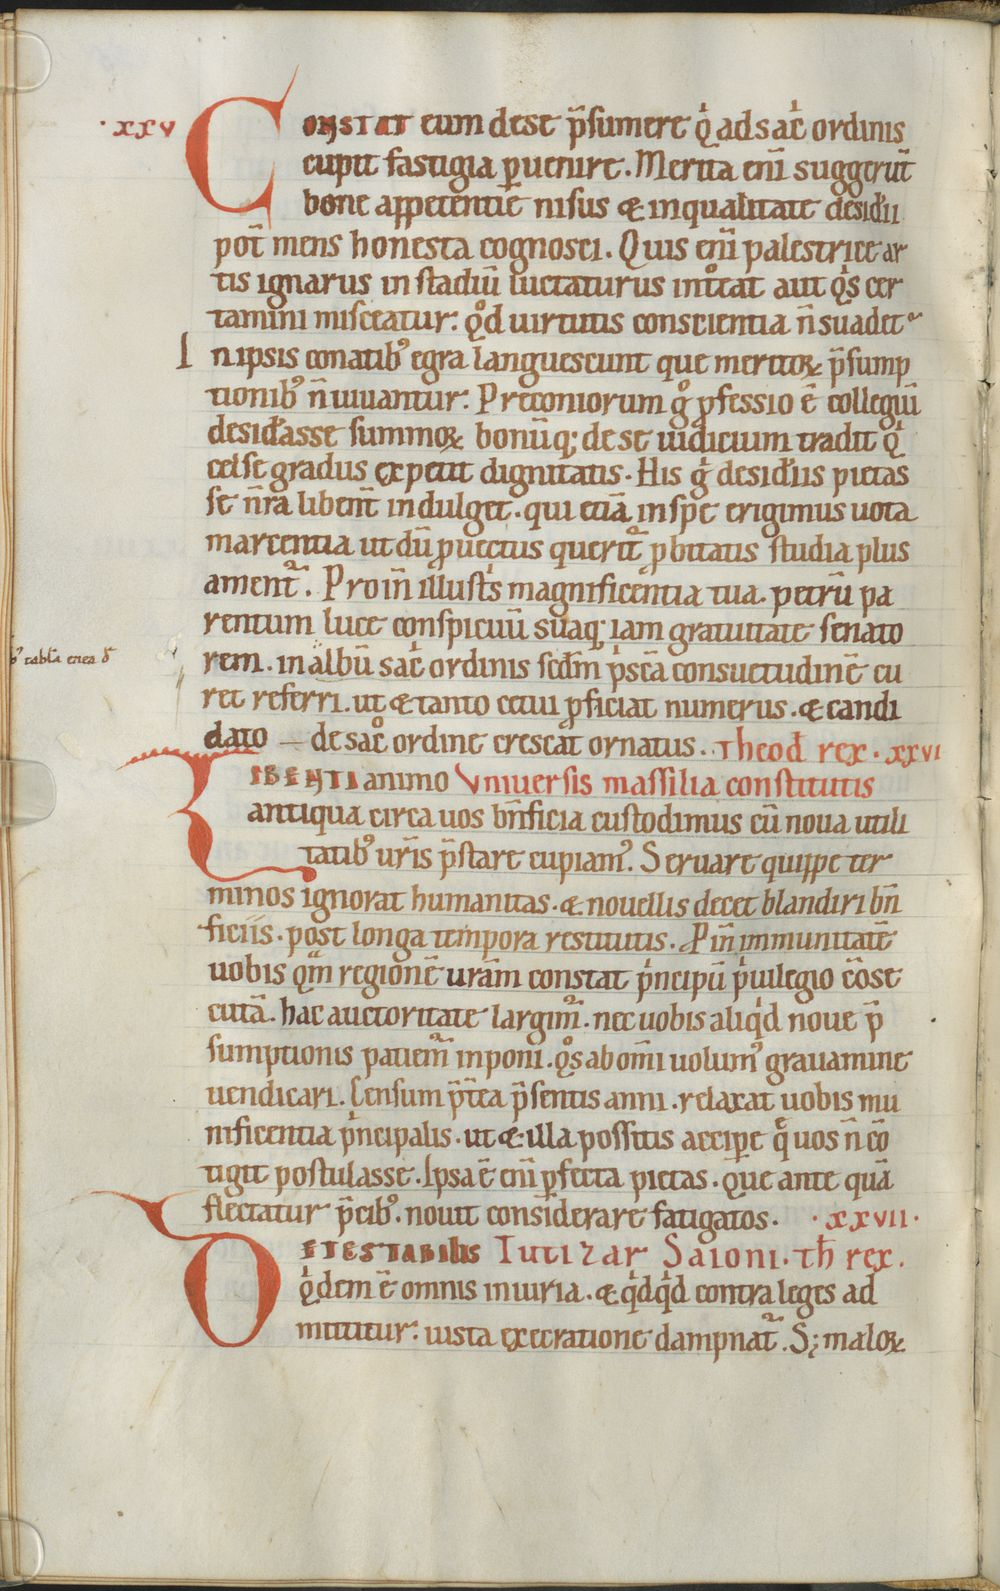 ·xxv CONSTAT eum de se p̄sumere q̇ ad sac̄ ordinis
cupit fastigia ꝑuenire. Merita eni᷑ suggerūt
bone appetentie nisus & in qualitate desid̄ii
pot̄ mens honesta cognosci. Quis eni᷑ palestrice ar
tis ignarus in stadiū luctaturus int̊at aut qͥs cer
tamini misceatur: qͦd uirtutis conscientia n̄ suadet
In ipsis conatibꝰ egra languescunt que meritoꝝ p̄sump
tionibꝰ n̄ iuuantur: Preconiorum gͦ ꝓfessio ē collegiū
desid̄asse summoꝝ bonūq; de se iudicium tradit qͥ
celse gradus expetit dignitatis. His gͥ desid̄iis pietas
se n̄ra libent̄ indulget. qui etiā in spe erigimus uota
marcentia ut dū ꝓuectus querit᷑ ꝓbitatis studia plus
ament᷑. Proin̄ illustͥs magnificentia tua. petrū pa
rentum luce conspicuū suaq; iam grauitate senato
rem. in albū sac̄ ordinis scd̄m pͥscā consuetudinē cu
ꝰ tabl̄a enea d̄
ret referri. ut & tanto cetui ꝓficiat numerus. & candi
dato — de sac̊ ordine crescat ornatus. Theod̄ rex. xxvi
LIBENTI animo Vniuersis massilia constitutis
antiqua circa uos bn̄ficia custodimus cū noua utili
tatibꝰ ur̄is p̄stare cupiamꝰ. Seruare quippe ter
minos ignorat humanitas. & nouellis decet blandiri bn̄
ficiis. post longa tempora restitutis. Pin̄ immunitatē
uobis qᷓm regionē uram̄ constat pͥncipū pͥuilegio c̄ose
cutā. hac auctoritate largim᷑. nec uobis aliqͥd noue p̄
sumptionis patiem᷑ inponi. qͦs ab om̄i uolumꝰ grauamine
uendicari. Censum p̄t̄ea p̄sentis anni. relaxat uobis mu
nificentia pͥncipalis. ut & illa possitis accipe q̄ uos n̄ cō
tigit postulasse. Ipsa ē eni᷑ ꝑfecta pietas. Que ante quā
flectatur p̄cibꝰ. nouit considerare fatigatos. ·xxvii·
DETESTABILIS Iutizar Saioni. th̄ rex.
qͥdem ē omnis iniuria. & qͥdqͥd contra leges ad
mittitur: iusta execratione dampnat᷑. S; maloꝝ